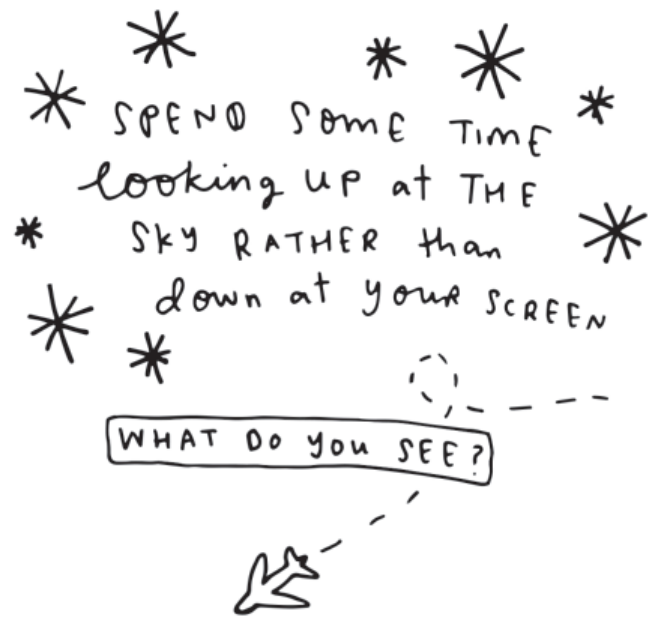 SPEND SOME TIME
looking UP at THE
SKY RATHER than
down at YOUR SCREEN
WHAT DO YOU SEE?